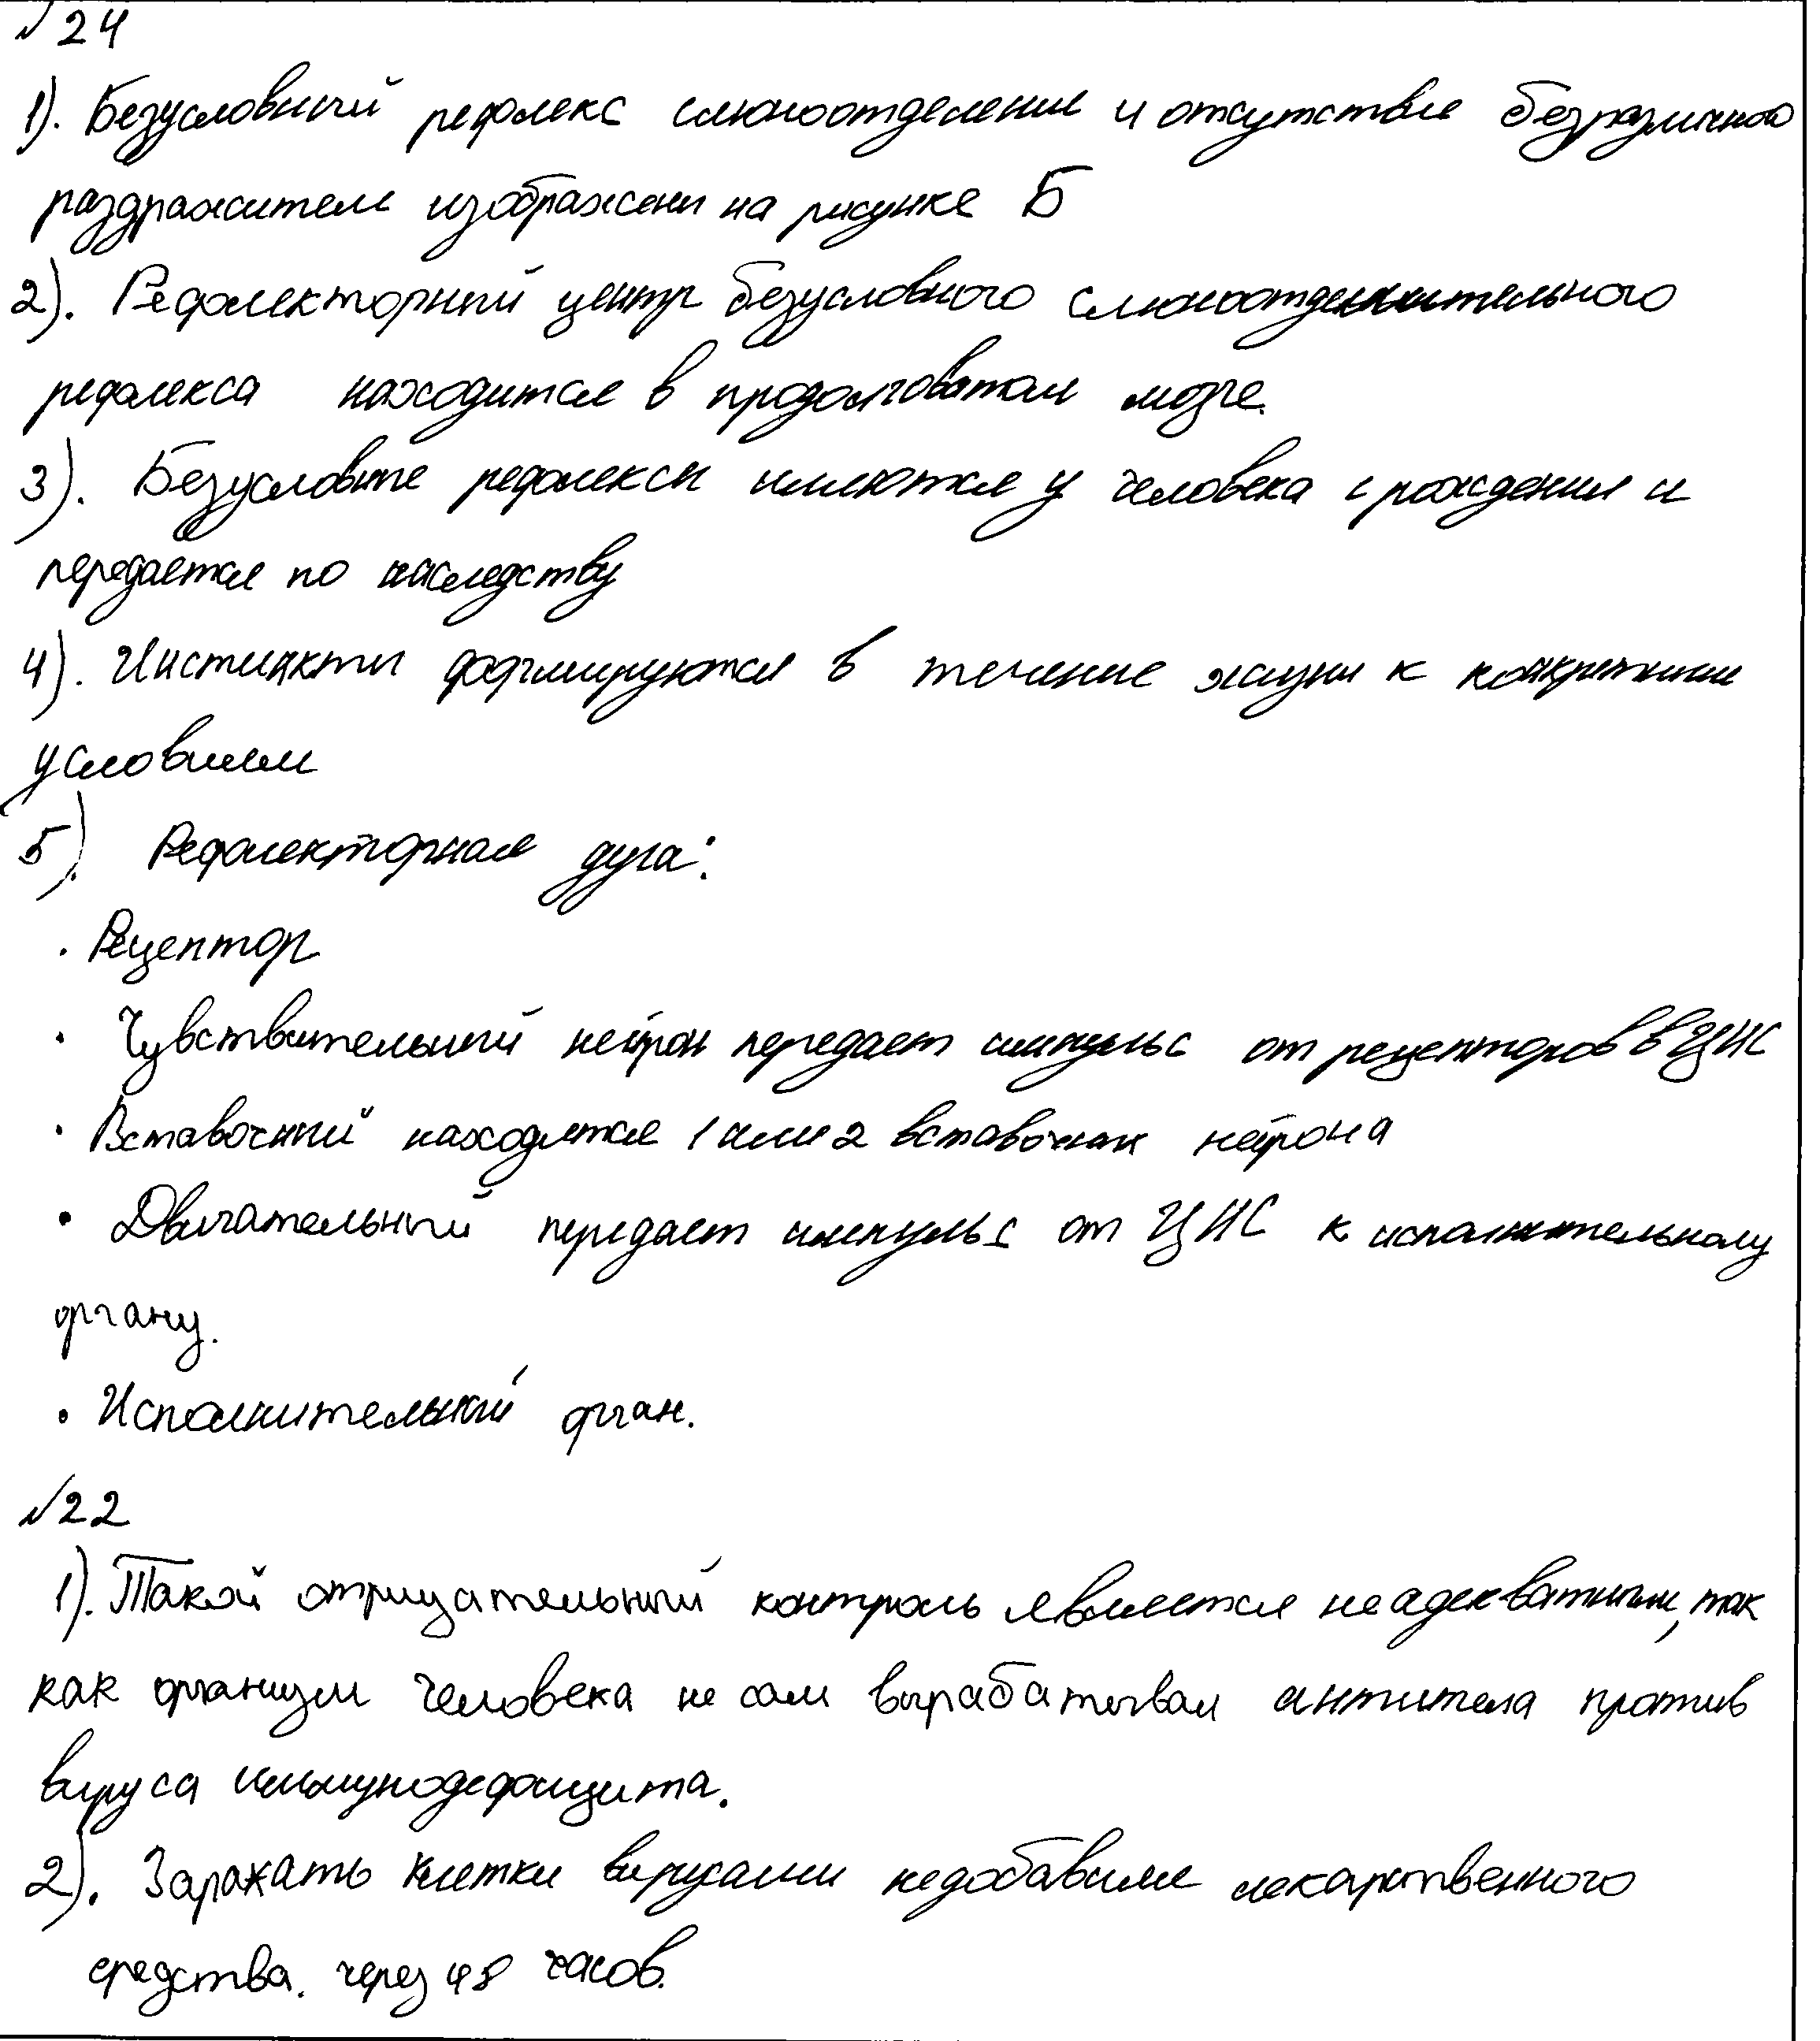 №24
1). Безусловный рефлекс слюноотделения и отсутствие безразличного
раздражителя изображены на рисунке Б
2). Рефлекторный центр безусловного слюноотделительного
рефлекса находится в продолговатом мозге.
3). Безусловные рефлексы имеются у человека с рождения и
передается по наследству
4). Инстинкты формируются в течение жизни к конкретным
условиям
5). Рефлекторная дуга:
. Рецептор
· Чувствительный нейрон передает импульс от рецепторов в ЦНС
· Вставочный находятся 1 или 2 вставочных нейрона
• Двигательный передает импульс от ЦНС к исполнительному
органу.
• Исполнительный орган.
№22
1). Такой отрицательный контроль является неадекватным, так
как организм человека не сам вырабатывал антитела против
вируса иммунодефицита.
2). Заражать клетки вирусами недобавляя лекарственного
средства. через 48 часов.